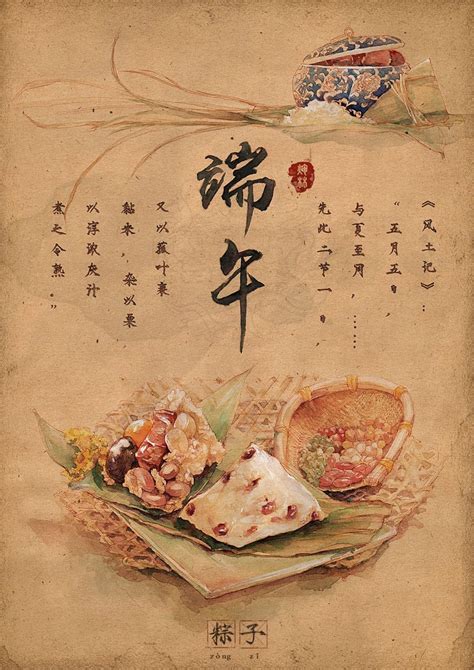 端午
《风土记》：
“五月五日，
与夏至同，……
先此二节一日，
又以菰叶裹
黏米，杂以粟
以淳浓灰汁
煮之令熟。”
粽子
zòng zǐ